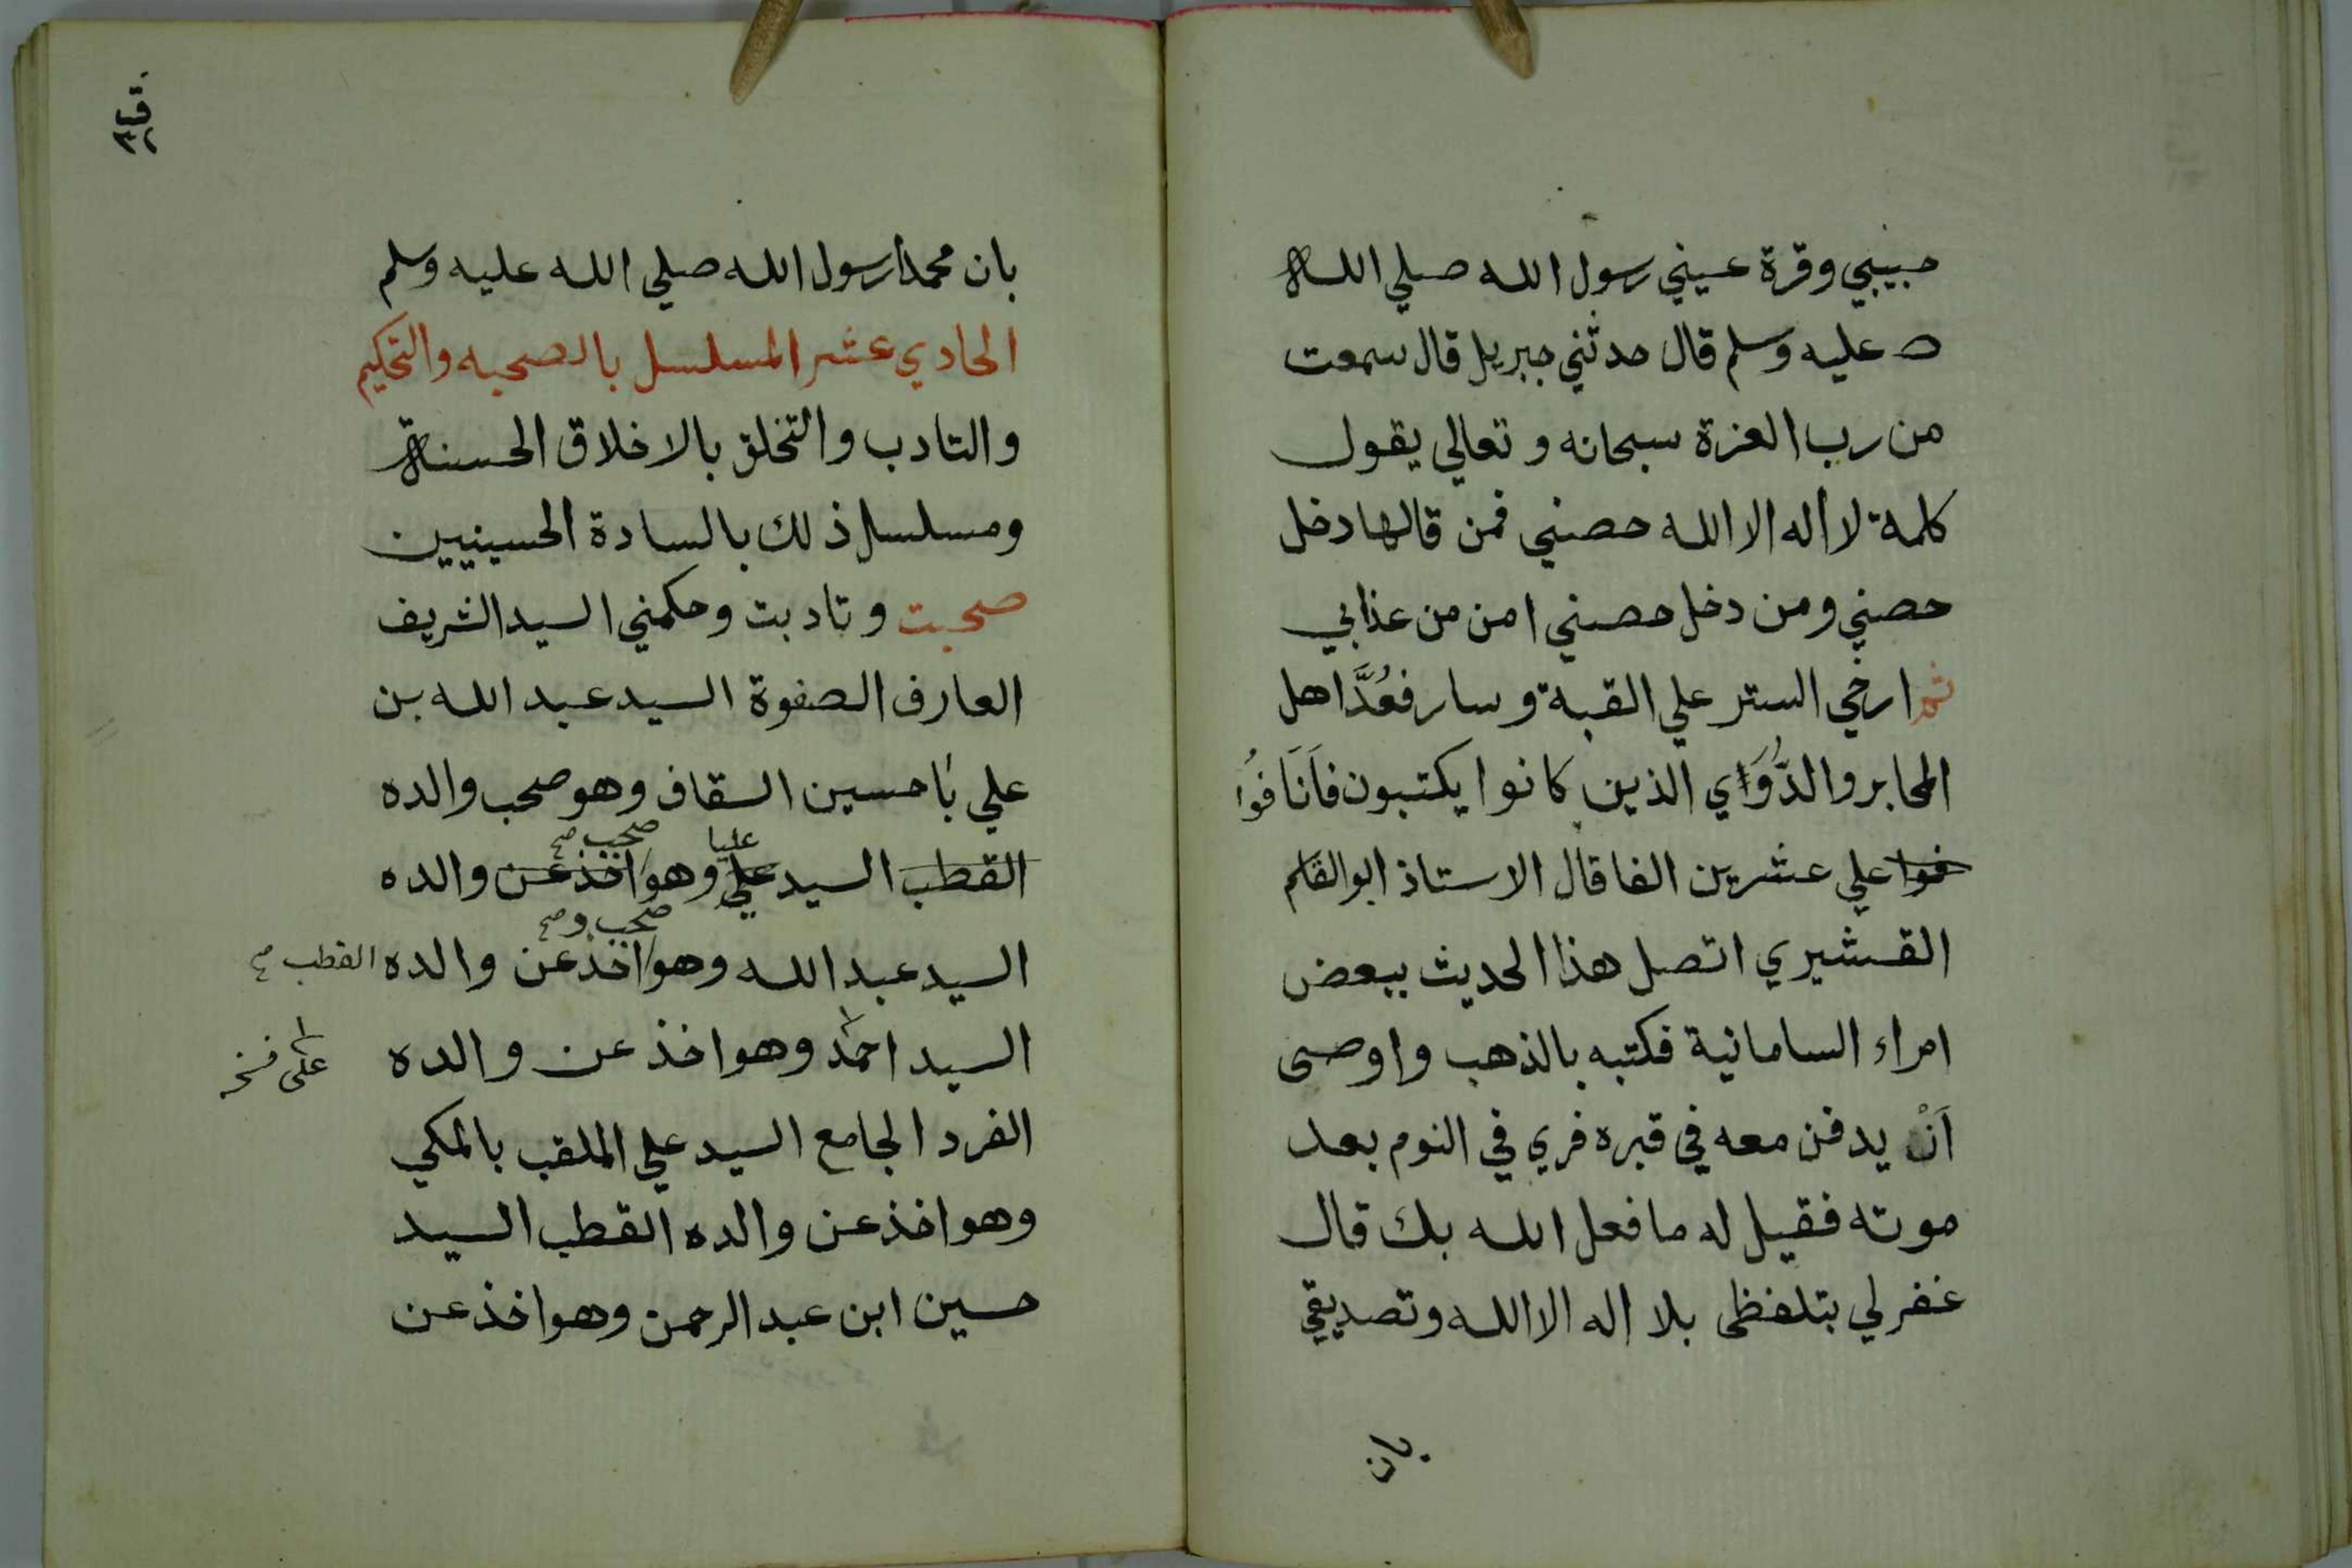 حبيبي وقرة عيني رسول الله صلي الله
عليه وسلم قال حدثني جبريل قال سمعت
من رب العزة سبحانه وتعالي يقول
كلمة لا اله الا الله حصني فمن قالها دخل
حصني ومن دخل حصني امن من عذابي
ثم ارخي الستر علي القبة وسار فعُدَّ اهل
المحابر والدُّوَاي الذين كانوا يكتبون فاَنَافُوا
فوا علي عشرين الفا قال الاستاذ ابو القاسم
القشيري اتصل هذا الحديث ببعض
امراء السامانية فكتبه بالذهب واوصى
اَنْ يدفن معه في قبره فري في النوم بعد
موته فقيل له ما فعل الله بك قال
غفر لي بتلفظى بلا اله الا الله وتصديقي
بان
بان محمدا رسول الله صلي الله عليه وسلم
الحادي عشر المسلسل بالصحبه والتحكيم
والتادب والتخلق بالاخلاق الحسنة
ومسلسل ذلك بالسادة الحسينيين
صحبت وتادبت وحكمني السيد الشريف
العارف الصفوة السيد عبد الله بن
علي باحسين السقاف وهو صحب والده
عليا صحب صح
القطب السيد علي وهو اخذ عن والده
صحب وصح
السيد عبد الله وهو اخذ عن والده القطب صح
السيد احمد وهو اخذ عن والده
على
الفرد الجامع السيد علي الملقب بالمكي
وهو اخذ عن والده القطب السيد
حسين ابن عبد الرحمن وهو اخذ عن